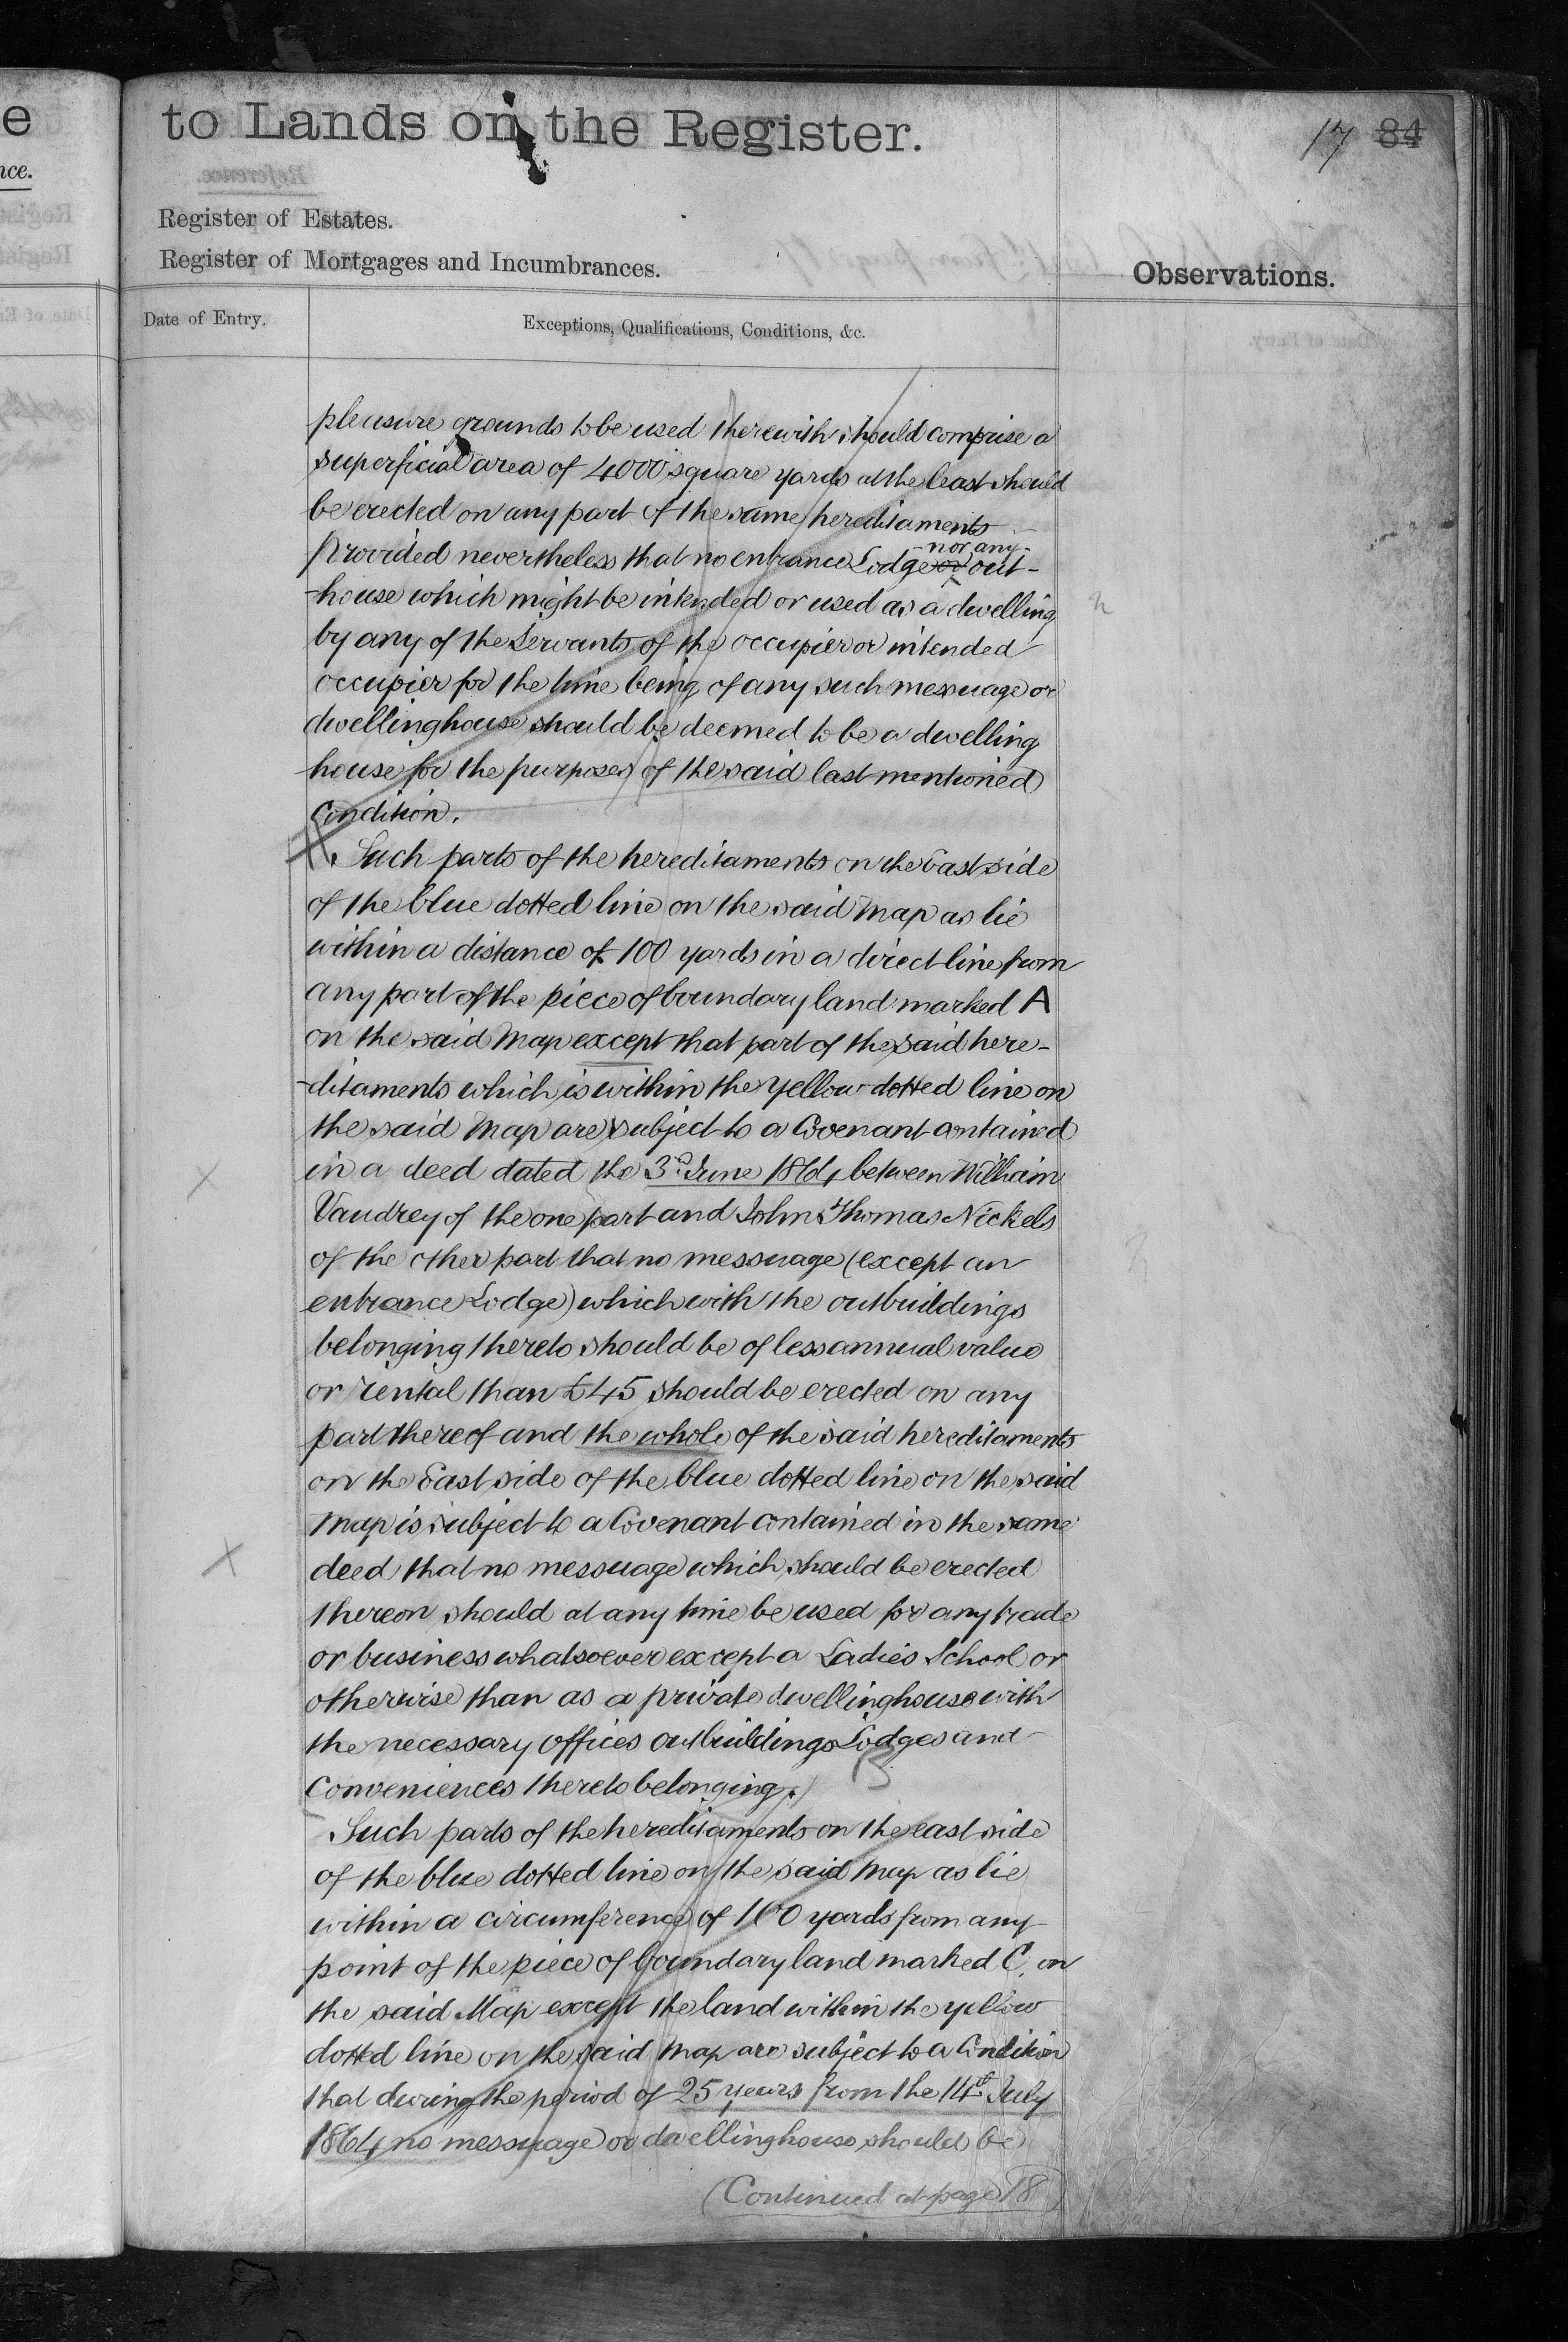 e
nce.
to Lands on the Register.
17 84
Register of Estates.
Register of Mortgages and Incumbrances.
Observations.
Date of Entry.
Exceptions, Qualifications, Conditions, &c.
pleasure grounds to be used therewith should comprise a
superficial area of 4000 square yards at the least should
be erected on any part of the same hereditaments
Provided nevertheless that no entrance Lodge or nor any out-
-house which might be intended or used as a dwelling
by any of the Servants of the occupier or intended
occupier for the time being of any such messuage or
dwellinghouse should be deemed to be a dwelling
house for the purposes of the said last mentioned
Condition.
Such parts of the hereditaments on the East side
of the blue dotted line on the said Map as lie
within a distance of 100 yards in a direct line from
any part of the piece of boundary land marked A
on the said Map except that part of the said here-
-ditaments which is within the yellow dotted line on
the said Map are subject to a Covenant contained
in a deed dated the 3rd June 1864 between William
Vaudrey of the one part and John Thomas Nickels
of the other part that no messuage (except an
entrance Lodge) which with the outbuildings
belonging thereto should be of less annual value
or rental than £45 should be erected on any
part thereof and the whole of the said hereditaments
on the East side of the blue dotted line on the said
Map is subject to a Covenant contained in the same
deed that no messuage which should be erected
thereon should at any time be used for any trade
or business whatsoever except a Ladies School or
otherwise than as a private dwellinghouse with
the necessary offices outbuildings Lodges and
conveniences thereto belonging.
Such parts of the hereditaments on the east side
of the blue dotted line on the said Map as lie
within a circumference of 100 yards from any
point of the piece of boundary land marked C. on
the said Map except the land within the yellow
dotted line on the said Map are subject to a Condition
that during the period of 25 years from the 14th July
1864 no messuage or dwellinghouse should be
(Continued at page 18)